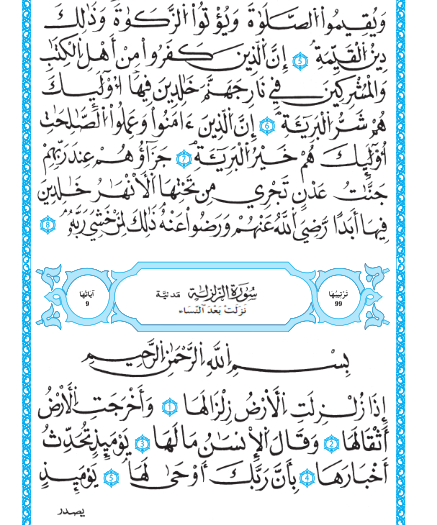 وَيُقِيمُوا۟ الصَّلَوٰةَ وَيُؤْتُوا۟ الزَّكَوٰةَ وَذَٰلِكَ
دِينُ الْقَيِّمَةِ 5 إِنَّ الَّذِينَ كَفَرُوا۟ مِنْ أَهْلِ الْكِتَٰبِ
وَالْمُشْرِكِينَ فِي نَارِ جَهَنَّمَ خَٰلِدِينَ فِيهَا أُو۟لَٰٓئِكَ
هُمْ شَرُّ الْبَرِيَّةِ 6 إِنَّ الَّذِينَ ءَامَنُوا۟ وَعَمِلُوا۟ الصَّٰلِحَٰتِ
أُو۟لَٰٓئِكَ هُمْ خَيْرُ الْبَرِيَّةِ 7 جَزَآؤُهُمْ عِندَ رَبِّهِمْ
جَنَّٰتُ عَدْنٍ تَجْرِي مِن تَحْتِهَا الْأَنْهَٰرُ خَٰلِدِينَ
فِيهَا أَبَدًا رَّضِيَ اللَّهُ عَنْهُمْ وَرَضُوا۟ عَنْهُ ذَٰلِكَ لِمَنْ خَشِيَ رَبَّهُۥ 8
تَرْتِيبُهَا 99
سُورَةُ الزَّلْزَلَةِ مَدَنِيَّة
نَزَلَتْ بَعْدَ النِّسَاء
آيَاتُهَا 9
بِسْمِ اللَّهِ الرَّحْمَٰنِ الرَّحِيمِ
إِذَا زُلْزِلَتِ الْأَرْضُ زِلْزَالَهَا 1 وَأَخْرَجَتِ الْأَرْضُ
أَثْقَالَهَا 2 وَقَالَ الْإِنسَٰنُ مَا لَهَا 3 يَوْمَئِذٍ تُحَدِّثُ
أَخْبَارَهَا 4 بِأَنَّ رَبَّكَ أَوْحَىٰ لَهَا 5 يَوْمَئِذٍ
يصدر